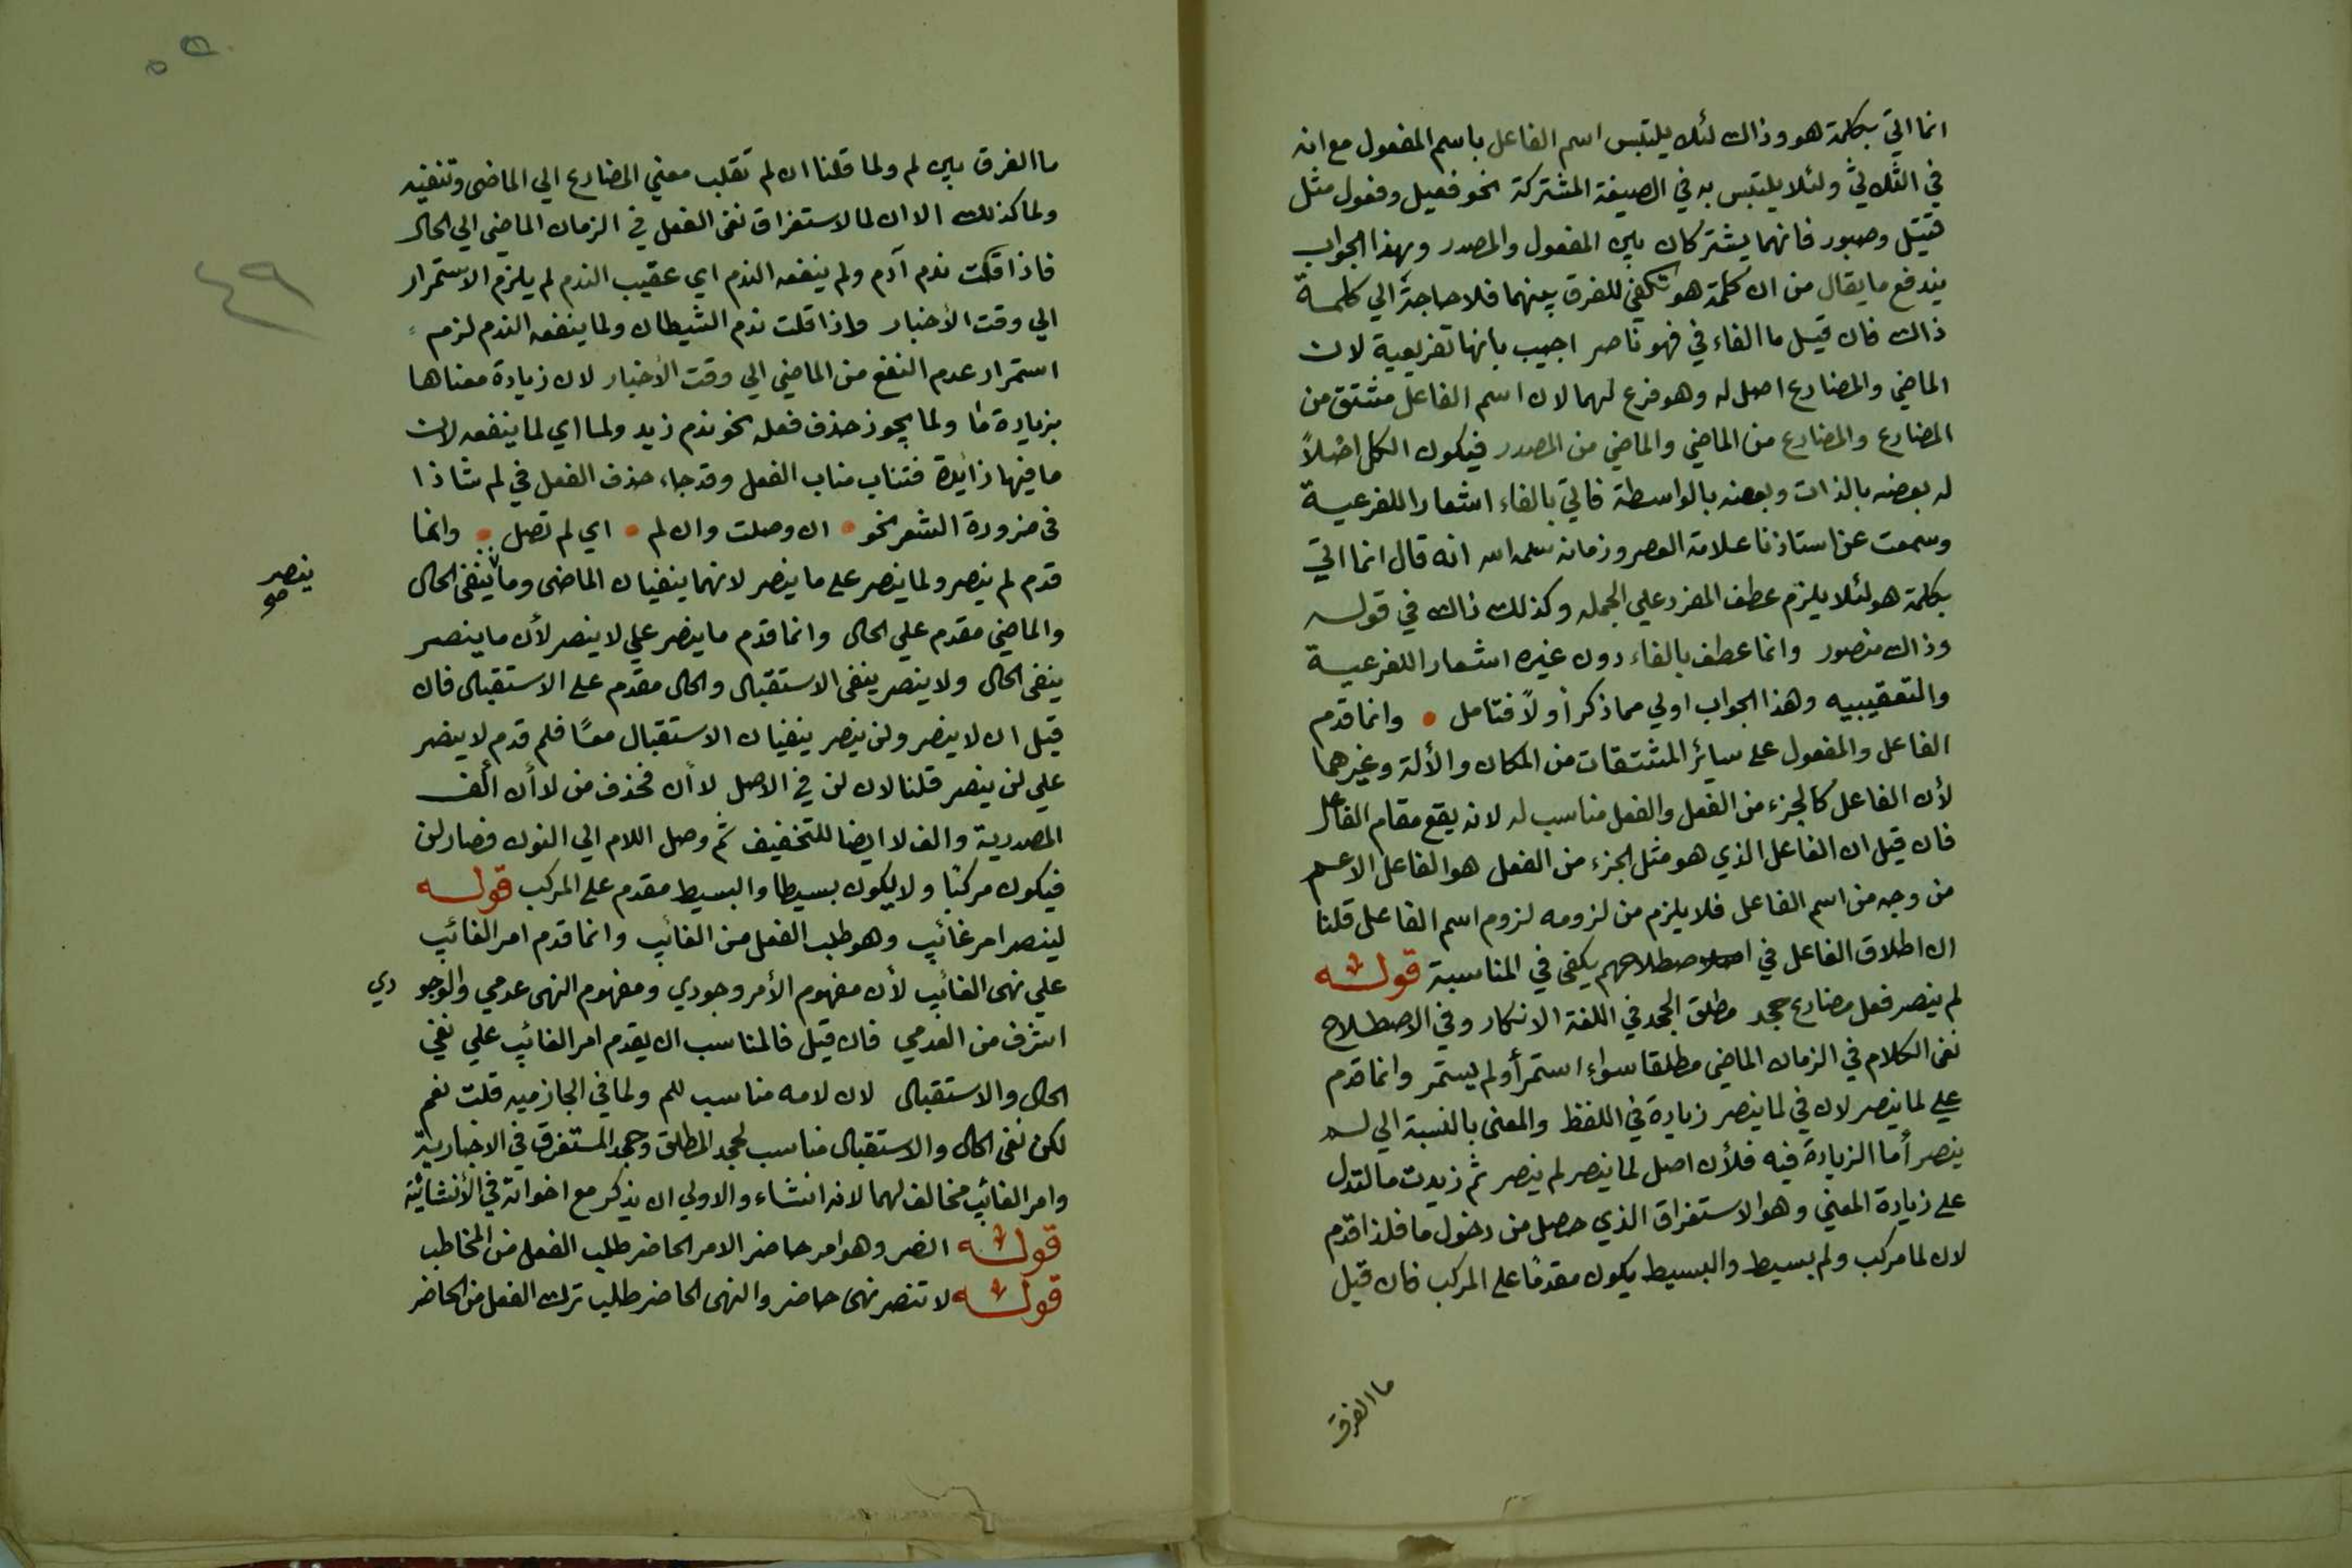 انما اتي بكلمة هو وذاك لئلا يلتبس اسم الفاعل باسم المفعول مع انه
في الثلاثي ولئلا يلتبس به في الصيغة المشتركة نحو فعيل وفعول مثل
قتيل وصبور فانهما يشتركان بين المفعول والمصدر وبهذا الجواب
يندفع ما يقال من ان كلمة هو تكفي للفرق بينهما فلا حاجة الي كلمة
ذاك فان قيل ما الفاء في فهو ناصر اجيب بانها تفريعية لان
الماضي والمضارع اصل له وهو فرع لهما لان اسم الفاعل مشتق من
المضارع والمضارع من الماضي والماضي من المصدر فيكون الكل اصلاً
له بعضه بالذات وبعضه بالواسطة فاتي بالفاء اشعارا للفرعية
وسمعت عن استاذنا علامة العصر وزمانه سلمه الله انه قال انما اتي
بكلمة هو لئلا يلزم عطف المفرد علي الجمله وكذلك ذاك في قوله
وذاك منصور وانما عطف بالفاء دون غيره اشعارا للفرعية
والتعقيبيه وهذا الجواب اولي مما ذكر أولاً فتامل • وانما قدم
الفاعل والمفعول على سائر المشتقات من المكان والألة وغيرهما
لأن الفاعل كالجزء من الفعل والفعل مناسب له لانه يقع مقام الفاعل
فان قيل ان الفاعل الذي هو مثل الجزء من الفعل هو الفاعل الاعم
من وجه من اسم الفاعل فلا يلزم من لزومه لزوم اسم الفاعل قلنا
ان اطلاق الفاعل في اصطلاحهم يكفي في المناسبة قوله
لم ينصر فعل مضارع جحد مطلق الجحد في اللغة الانكار وفي الاصطلاح
نفي الكلام في الزمان الماضي مطلقا سواء استمر أو لم يستمر وانما قدم
علي لما ينصر لان في لما ينصر زيادة في اللفظ والمعنى بالنسبة الي لم
ينصر أما الزيادة فيه فلأن اصل لما ينصر لم ينصر ثم زيدت ما لتدل
على زيادة المعني وهو الاستغراق الذي حصل من دخول ما فلذا قدم
لان لما مركب ولم بسيط والبسيط يكون مقدمًا على المركب فان قيل
ما الفرق
ما الفرق بين لم ولما قلنا ان لم تقلب معني المضارع الي الماضي وتنفيه
ولما كذلك الا ان لما لاستغراق نفي الفعل في الزمان الماضي الي الحال
فاذا قلت ندم آدم ولم ينفعه الندم اي عقيب الندم لم يلزم الاستمرار
الي وقت الأخبار واذا قلت ندم الشيطان ولما ينفعه الندم لزم
استمرار عدم النفع من الماضي الي وقت الأخبار لان زيادة معناها
بزيادة ما ولما يجوز حذف فعله نحو ندم زيد ولما اي لما ينفعه لان
ما فيها زائدة فتناب مناب الفعل وقد جاء حذف الفعل في لم شاذا
في ضرورة الشعر نحو • ان وصلت وان لم • اي لم تصل • وانما
قدم لم ينصر ولما ينصر على ما ينصر لانهما ينفيان الماضي وما ينفي الحال
ينصر
صح
والماضي مقدم علي الحال وانما قدم ما ينصر علي لا ينصر لأن ما ينصر
ينفي الحال ولا ينصر ينفي الاستقبال والحال مقدم على الاستقبال فان
قيل ان لا ينصر ولن ينصر ينفيان الاستقبال معًا فلم قدم لا ينصر
علي لن ينصر قلنا لان لن في الاصل لا أن فحذف من لا أن ألف
المصدرية والف لا ايضا للتخفيف ثم وصل اللام الي النون فصار لن
فيكون مركبًا ولا يكون بسيطا والبسيط مقدم على المركب قوله
لينصر امر غائب وهو طلب الفعل من الغائب وانما قدم امر الغائب
علي نهي الغائب لأن مفهوم الأمر وجودي ومفهوم النهي عدمي والوجودي
اشرف من العدمي فان قيل فالمناسب ان يقدم امر الغائب علي نفي
الحال والاستقبال لان لامه مناسب للم ولما في الجازميه قلت نعم
لكن نفي الحال والاستقبال مناسب لجحد المطلق وجحد المستغرق في الاخبارية
وامر الغائب مخالف لهما لانه انشاء والاولي ان يذكر مع اخواته في الأنشائية
قوله انصر وهو امر حاضر الامر الحاضر طلب الفعل من المخاطب
قوله لا تنصر نهي حاضر والنهي الحاضر طلب ترك الفعل من الحاضر
٤٩